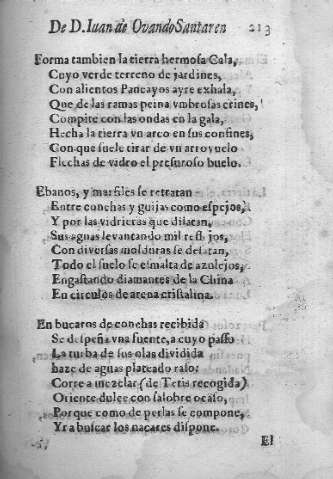 De D. Iuan de Ovando Santaren 213
Forma tambien la tierra hermosa Cala,
Cuyo verde terreno de jardines,
Con alientos Pancayos ayre exhala,
Que de las ramas peina vmbrosas crines,
Compite con las ondas en la gala,
Hecha la tierra vn arco en sus confines,
Con que suele tirar de vn arroyuelo
Flechas de vidro el presuroso buelo.
Ebanos, y marfiles se retratan
Entre conchas y guijas como espejos,
Y por las vidrieras que dilatan,
Sus aguas levantando mil reflejos,
Con diversas molduras se desatan,
Todo el suelo se esmalta de azulejos,
Engastando diamantes de la China
En circulos de arena cristalina.
En bucaros de conchas recibida
Se despeña vna fuente, a cuyo passo
La turba de sus olas dividida
haze de aguas plateado raso;
Corre a mezclar (de Tetis recogida)
Oriente dulce con salobre ocaso,
Porque como de perlas se compone,
Yr a buscar los nacares dispone.
El